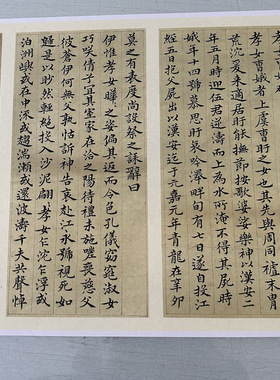 孝女曹娥者上虞曹盱之女也其先與周同祖末胄
荒沉爰来適居盱能撫節按歌婆娑樂神以漢安二
年五月時迎伍君逆濤而上為水所淹不得其屍時
娥年十四號慕思盱哀吟澤畔旬有七日遂自投江死
經五日抱父屍出以漢安迄于元嘉元年青龍在辛卯
莫之有表度尚設祭之誄辭曰
伊惟孝女曄曄之姿偏其返而令色孔儀窈窕淑女
巧咲倩兮宜其室家在洽之陽待禮未施嗟喪慈父
彼蒼伊何無父孰怙訴神告哀赴江永號視死如歸
是以眇然輕絕投入沙泥翩翩孝女乍沉乍浮或
泊洲嶼或在中流或趨湍瀨或還波濤千夫共聲悼